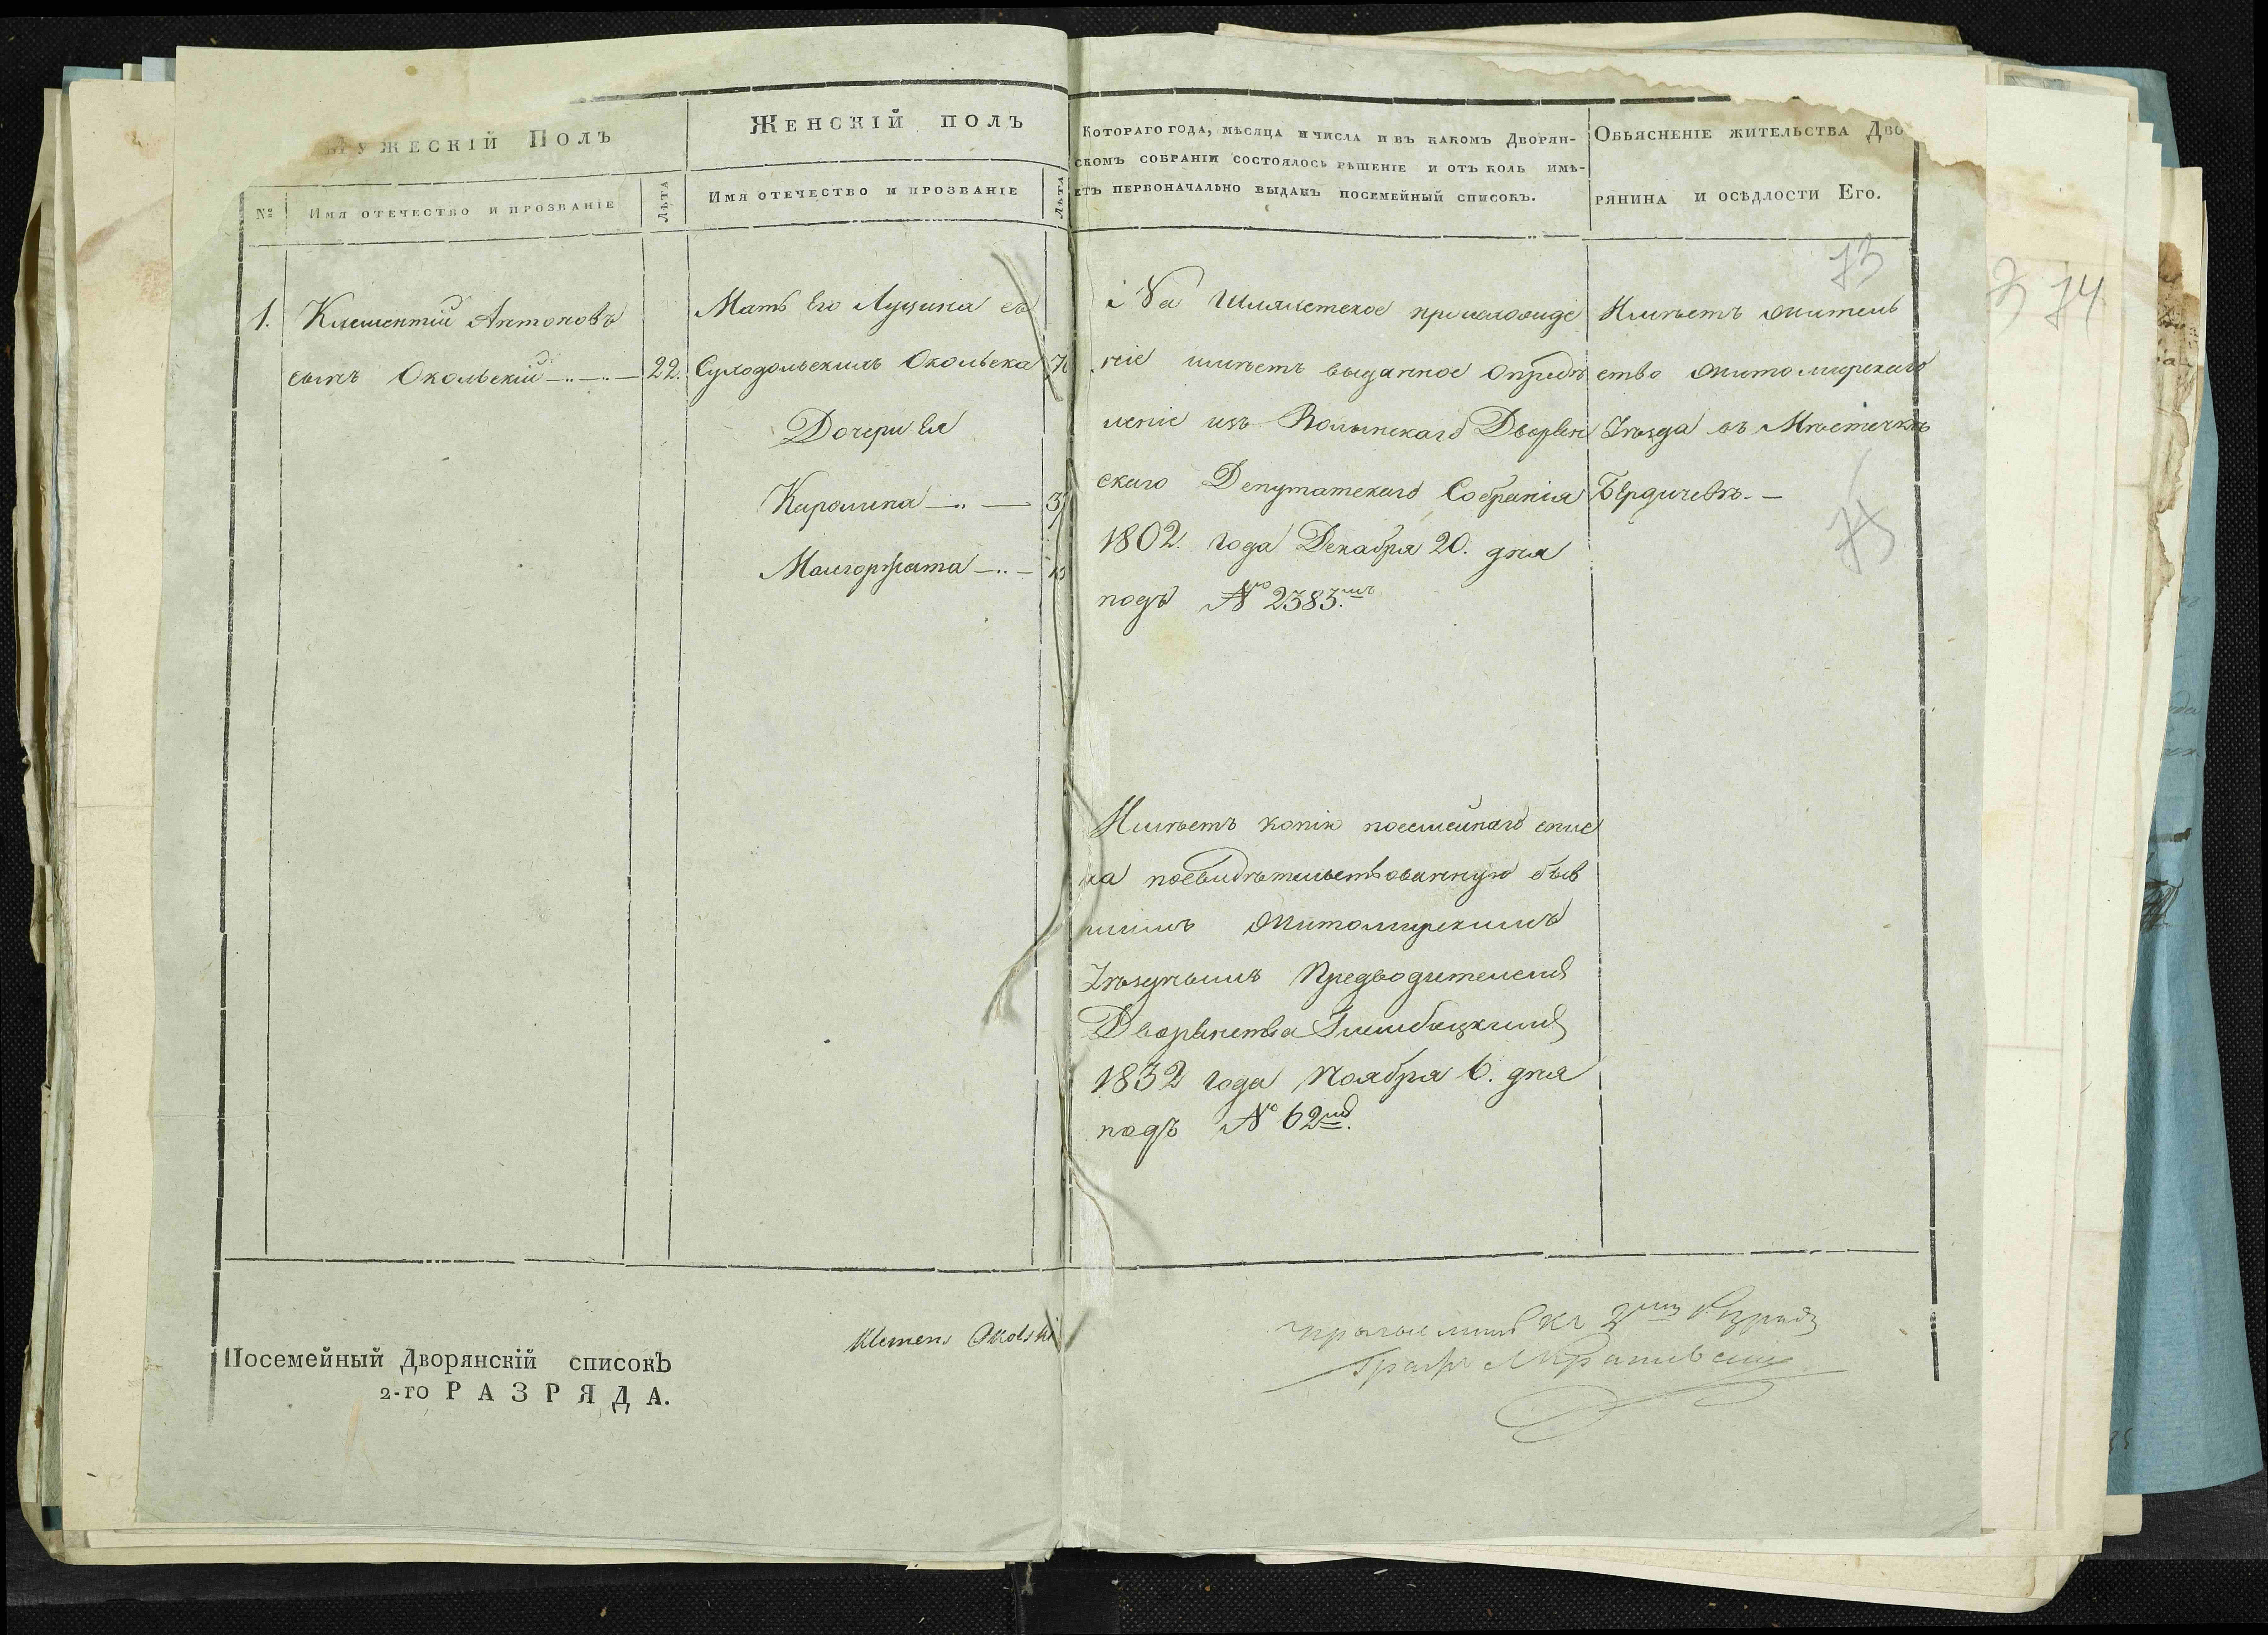 Мужескій Полъ
Женскій полъ
№
Имя отечество и прозваніе
Лѣта
Имя отечество и прозваніе
Лѣта
Котораго года, мѣсяца и числа и въ какомъ Дворян-
скомъ собраніи состоялось рѣшеніе и отъ коль имѣ-
етъ первоначально выданъ посемейный списокъ.
Обьясненіе жительства Дво
рянина и осѣдлости Его.
73
74
1. Клементій Антоновъ
сынъ Окольскій 22.
Мать Его Луцина съ
Суходольскихъ Окольска
Дочери Ея
Каролина
Малгоржата
На Шляхетское происхожде
ніе имѣетъ выданное Опредѣ
леніе изъ Волынскаго Дворян
скаго Депутатскаго Собранія
1802. года Декабря 20. дня
подъ № 2383.мъ
Имѣетъ копію посемейнаго спис
ка посвидѣтельствованную быв
шимъ Житомирскимъ
Уѣзднымъ Предводителемъ
Дворянства
1832 года Ноября 6. дня
подъ № 62мъ.
Имѣетъ житель
ство Житомирскаго
Уѣзда въ Мѣстечкѣ
Бердичевѣ.
75
Посемейный Дворянскій списокъ
2-го РАЗРЯДА.
Klemens Okolski
къ 2му Разряду
Графъ